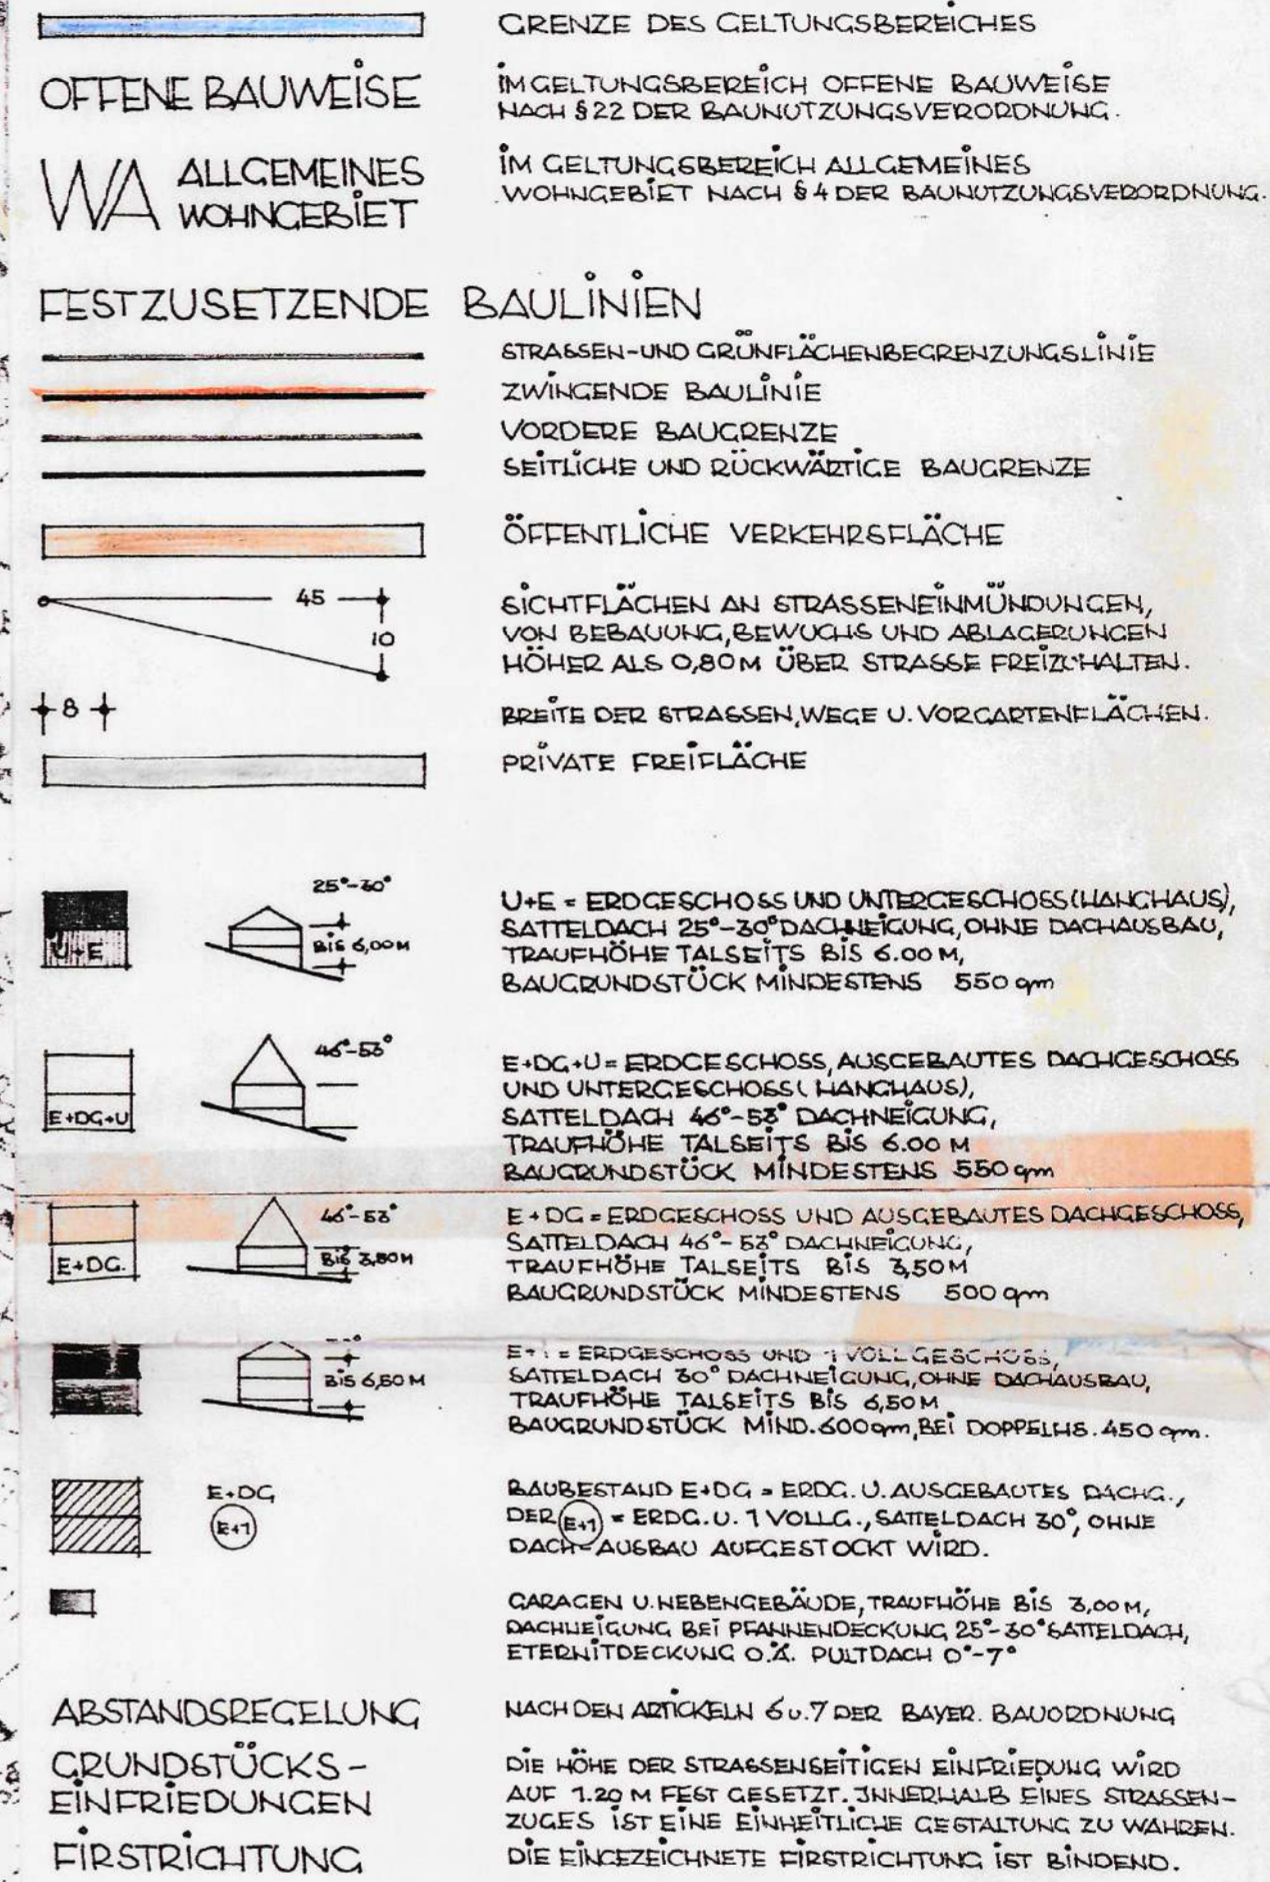 GRENZE DES GELTUNGSBEREICHES
OFFENE BAUWEISE
IM GELTUNGSBEREICH OFFENE BAUWEISE
NACH § 22 DER BAUNUTZUNGSVERORDNUNG.
WA ALLGEMEINES
WOHNGEBIET
IM GELTUNGSBEREICH ALLGEMEINES
WOHNGEBIET NACH § 4 DER BAUNUTZUNGSVERORDNUNG.
FESTZUSETZENDE BAULINIEN
STRASSEN-UND GRÜNFLÄCHENBEGRENZUNGSLINIE
ZWINGENDE BAULINIE
VORDERE BAUGRENZE
SEITLICHE UND RÜCKWÄRTIGE BAUGRENZE
ÖFFENTLICHE VERKEHRSFLÄCHE
45
10
SICHTFLÄCHEN AN STRASSENEINMÜNDUNGEN,
VON BEBAUUNG, BEWUCHS UND ABLAGERUNGEN
HÖHER ALS 0,80 M ÜBER STRASSE FREIZUHALTEN.
8
BREITE DER STRASSEN, WEGE U. VORGARTENFLÄCHEN.
PRIVATE FREIFLÄCHE
U+E
25°-30°
BIS 6,00 M
U+E = ERDGESCHOSS UND UNTERGESCHOSS (HANGHAUS),
SATTELDACH 25°-30° DACHNEIGUNG, OHNE DACHAUSBAU,
TRAUFHÖHE TALSEITS BIS 6.00 M,
BAUGRUNDSTÜCK MINDESTENS 550 qm
E+DG+U
46°-53°
E+DG+U = ERDGESCHOSS, AUSGEBAUTES DACHGESCHOSS
UND UNTERGESCHOSS (HANGHAUS),
SATTELDACH 46°-53° DACHNEIGUNG,
TRAUFHÖHE TALSEITS BIS 6.00 M
BAUGRUNDSTÜCK MINDESTENS 550 qm
E+DG.
46°-53°
BIS 3,50 M
E+DG = ERDGESCHOSS UND AUSGEBAUTES DACHGESCHOSS,
SATTELDACH 46°-53° DACHNEIGUNG,
TRAUFHÖHE TALSEITS BIS 3,50 M
BAUGRUNDSTÜCK MINDESTENS 500 qm
BIS 6,50 M
E+1 = ERDGESCHOSS UND 1 VOLLGESCHOSS,
SATTELDACH 30° DACHNEIGUNG, OHNE DACHAUSBAU,
TRAUFHÖHE TALSEITS BIS 6,50 M
BAUGRUNDSTÜCK MIND. 600 qm, BEI DOPPELHS. 450 qm.
E+DG
E+1
BAUBESTAND E+DG = ERDG. U. AUSGEBAUTES DACHG.,
DER E+1 = ERDG. U. 1 VOLLG., SATTELDACH 30°, OHNE
DACH-AUSBAU AUFGESTOCKT WIRD.
GARAGEN U. NEBENGEBÄUDE, TRAUFHÖHE BIS 3,00 M,
DACHNEIGUNG BEI PFANNENDECKUNG 25°-30° SATTELDACH,
ETERNITDECKUNG O.Ä. PULTDACH 0°-7°
ABSTANDSREGELUNG
NACH DEN ARTICKELN 6 u. 7 DER BAYER. BAUORDNUNG
GRUNDSTÜCKS-
EINFRIEDUNGEN
DIE HÖHE DER STRASSENSEITIGEN EINFRIEDUNG WIRD
AUF 1.20 M FEST GESETZT. INNERHALB EINES STRASSEN-
ZUGES IST EINE EINHEITLICHE GESTALTUNG ZU WAHREN.
FIRSTRICHTUNG
DIE EINGEZEICHNETE FIRSTRICHTUNG IST BINDEND.